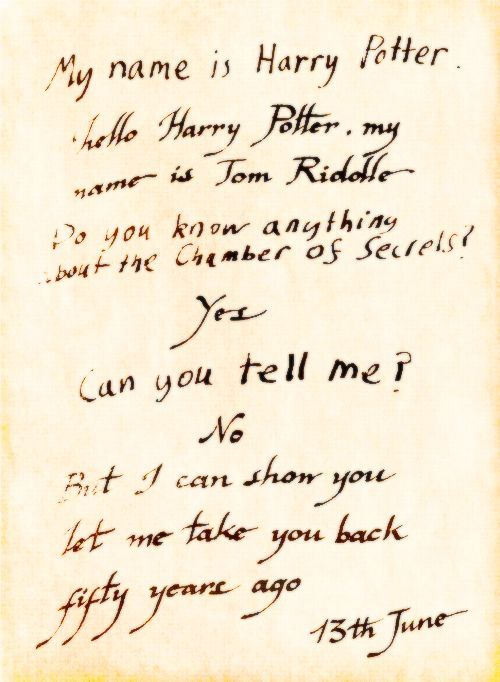 My name is Harry Potter.
hello Harry Potter. my
name is Tom Riddle
Do you know anything
about the Chamber of Secrets?
Yes
Can you tell me?
No
But I can show you
let me take you back
fifty years ago
13th June